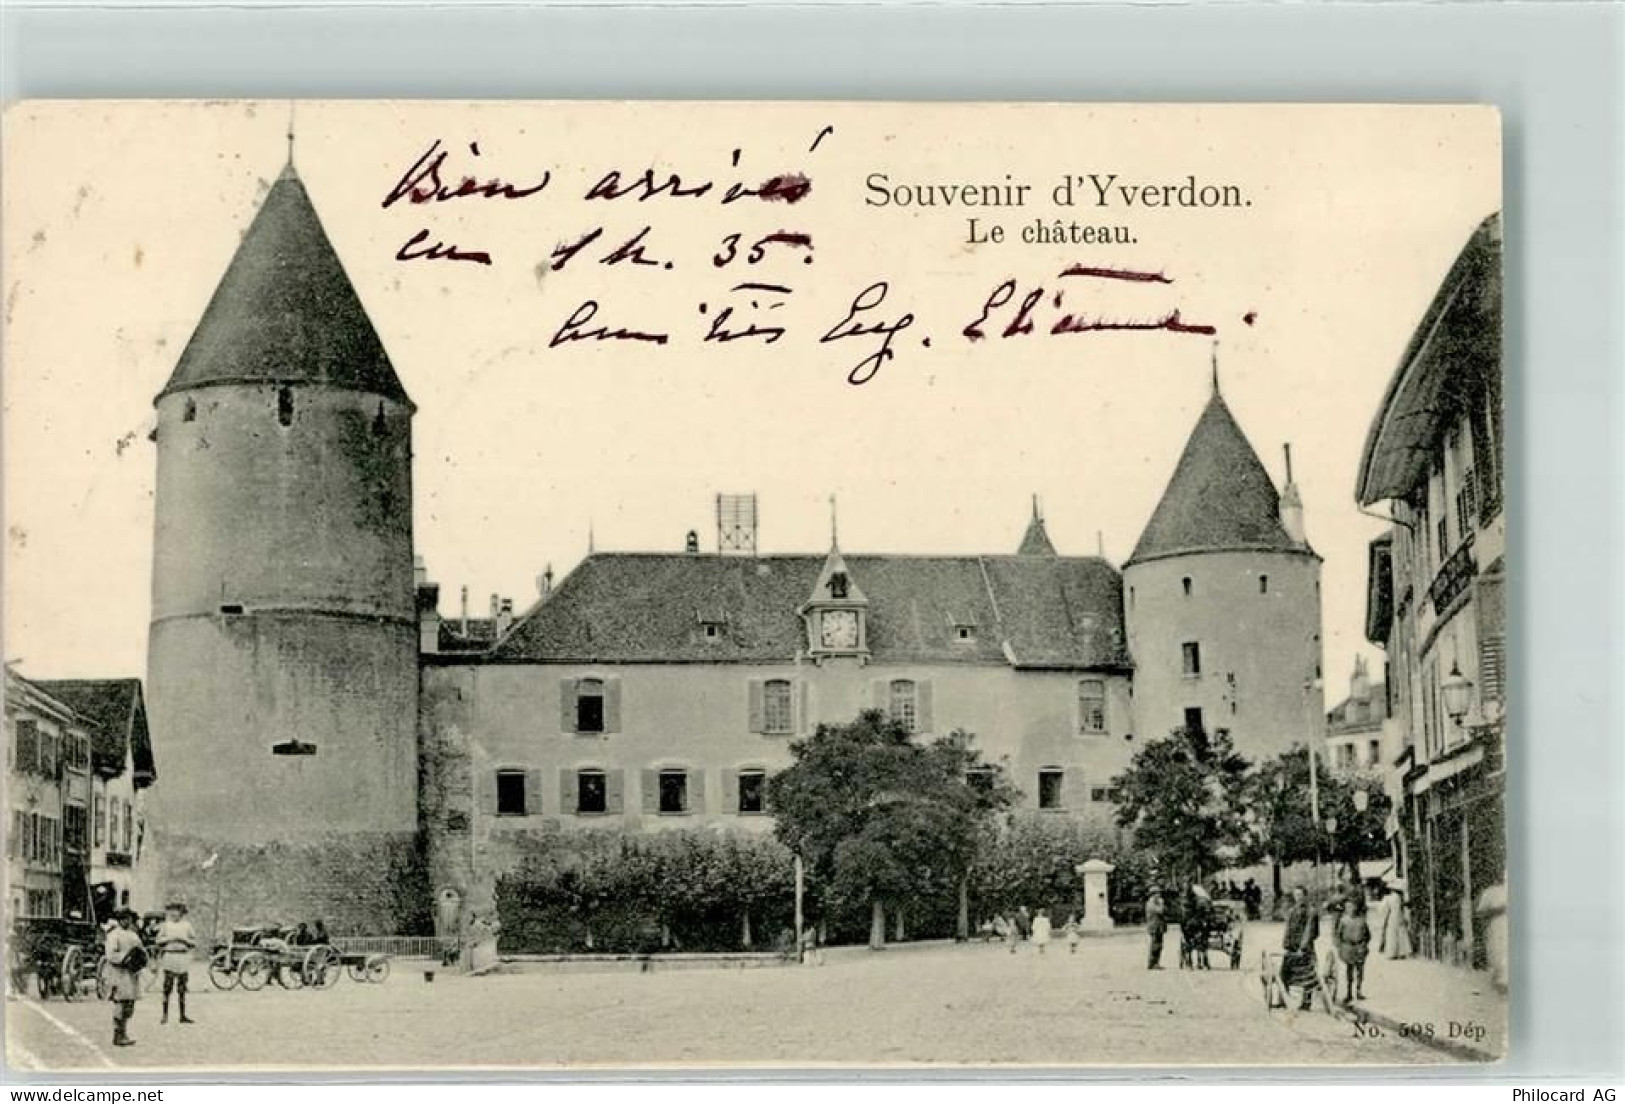 Bien arrivés
en 1 h. 35.
Souvenir d'Yverdon.
Le château.
Amitiés Eug. Etienne.
No. 508 Dép
Philocard AG